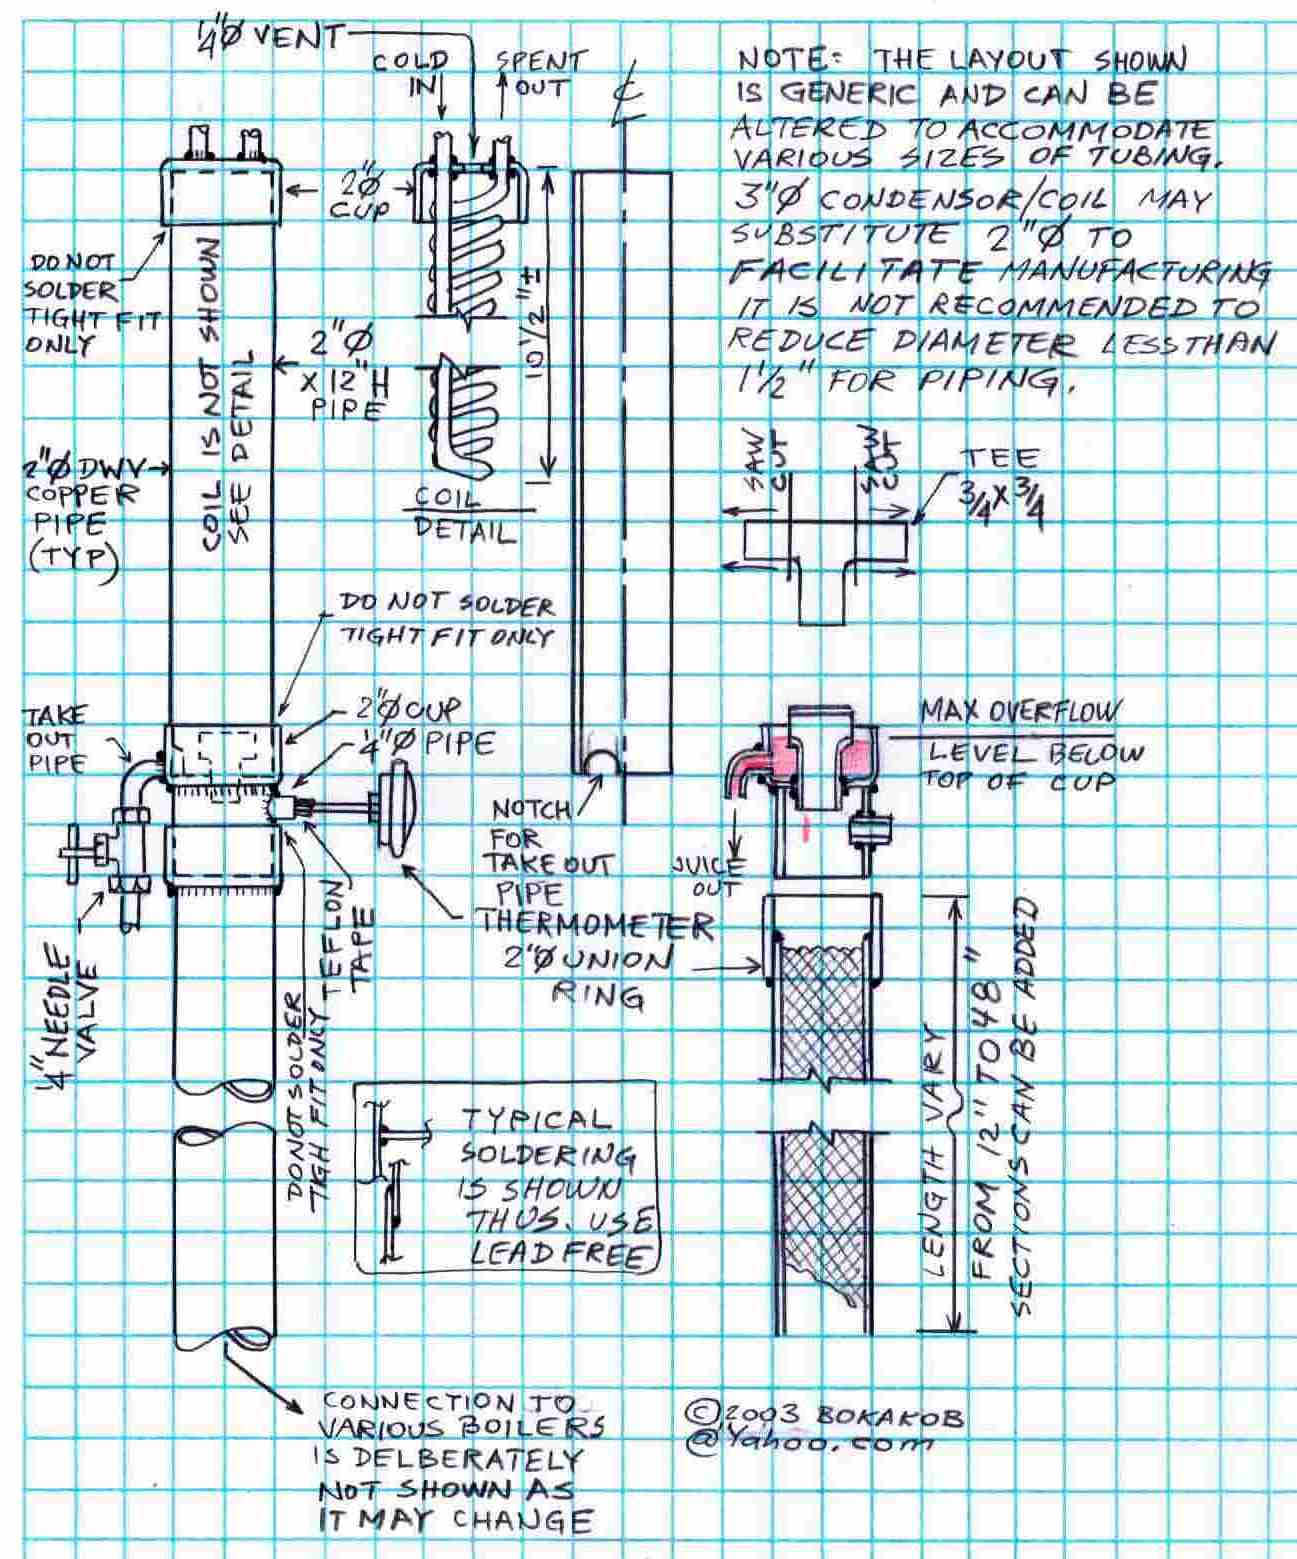 1/4"Ø VENT
COLD
IN
SPENT
OUT
℄
NOTE: THE LAYOUT SHOWN
IS GENERIC AND CAN BE
ALTERED TO ACCOMMODATE
VARIOUS SIZES OF TUBING.
3"Ø CONDENSOR/COIL MAY
SUBSTITUTE 2"Ø TO
FACILITATE MANUFACTURING
IT IS NOT RECOMMENDED TO
REDUCE DIAMETER LESS THAN
1 1/2" FOR PIPING.
2"Ø
CUP
DO NOT
SOLDER
TIGHT FIT
ONLY
COIL IS NOT SHOWN
SEE DETAIL
2"Ø
X 12"H
PIPE
10 1/2"±
2"Ø DWV
COPPER
PIPE
(TYP)
COIL
DETAIL
SAW
CUT
SAW
CUT
TEE
3/4 X 3/4
DO NOT SOLDER
TIGHT FIT ONLY
TAKE
OUT
PIPE
2"Ø CUP
1/4"Ø PIPE
MAX OVERFLOW
LEVEL BELOW
TOP OF CUP
NOTCH
FOR
TAKE OUT
PIPE
JUICE
OUT
THERMOMETER
2"Ø UNION
RING
1/4" NEEDLE
VALVE
TEFLON
TAPE
DO NOT SOLDER
TIGH FIT ONLY
LENGTH VARY
FROM 12" TO 48"
SECTIONS CAN BE ADDED
TYPICAL
SOLDERING
IS SHOWN
THUS. USE
LEAD FREE
CONNECTION TO
VARIOUS BOILERS
IS DELBERATELY
NOT SHOWN AS
IT MAY CHANGE
©2003 BOKAKOB
@Yahoo.com